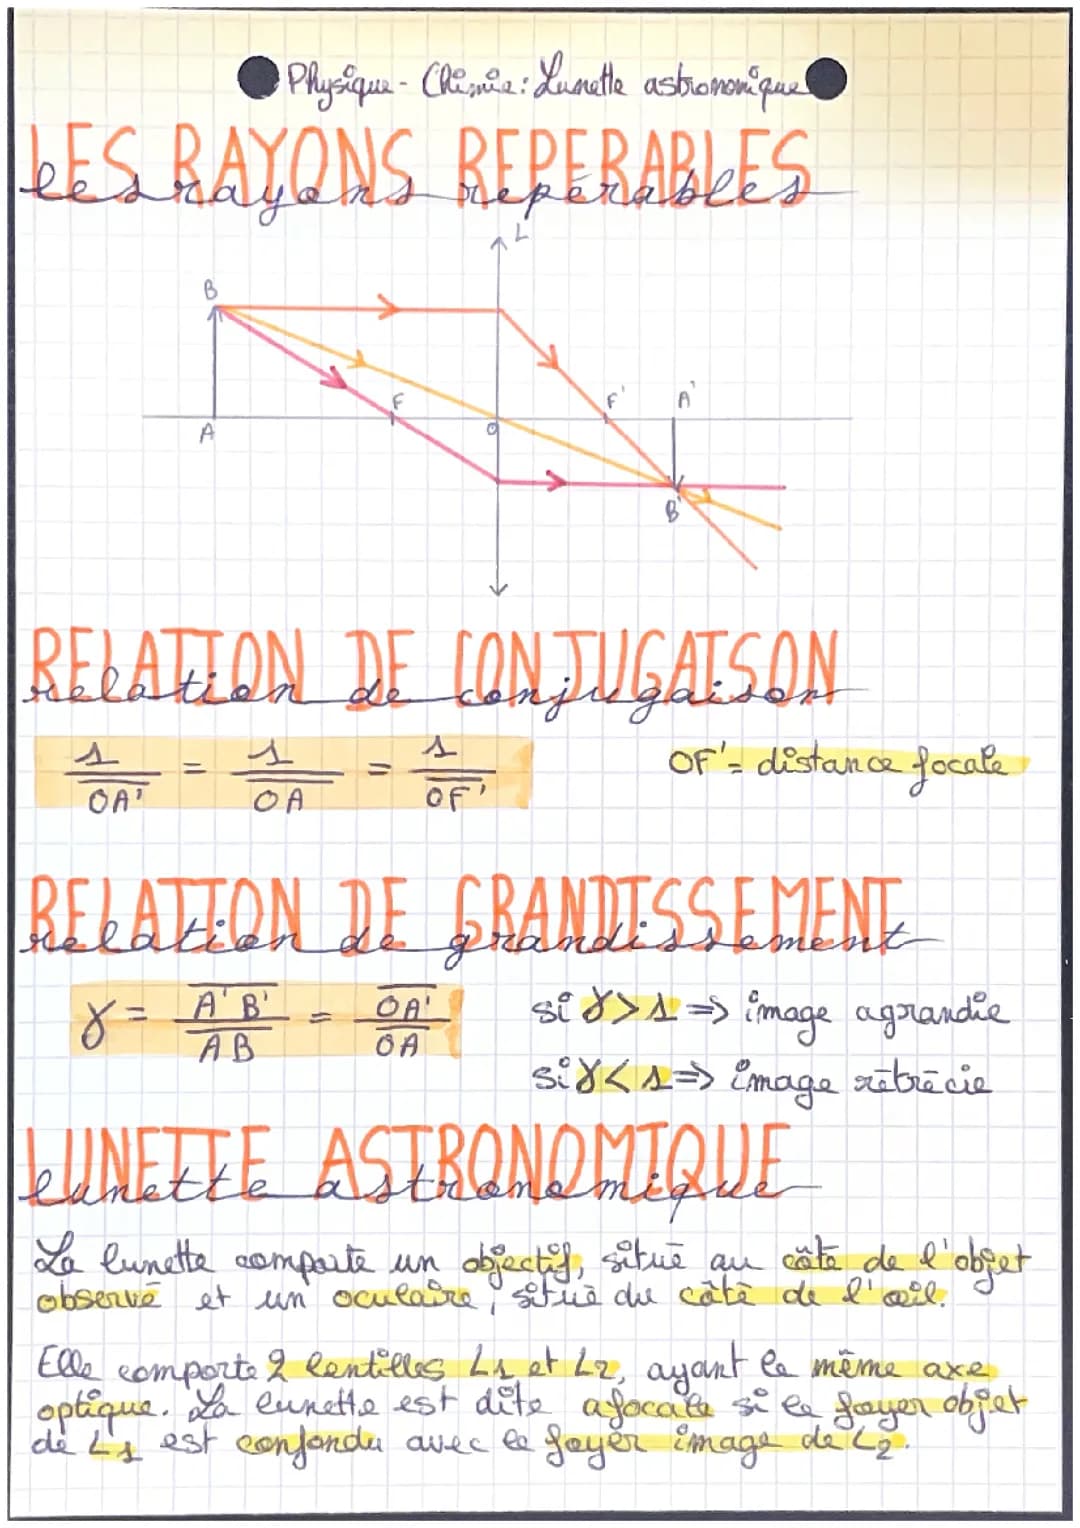 Physique - Chimie : Lunette astronomique
LES RAYONS REPERABLES
les rayons repérables
L
B
F
F'
A'
A
O
B'
RELATION DE CONJUGAISON
relation de conjugaison
1/OA' = 1/OA = 1/OF'
OF' = distance focale
RELATION DE GRANDISSEMENT
relation de grandissement
γ = A'B'/AB = OA'/OA
si γ > 1 => image agrandie
si γ < 1 => image rétrécie
LUNETTE ASTRONOMIQUE
lunette astronomique
La lunette comporte un objectif, situé au côté de l'objet
observé et un oculaire, situé du côté de l'œil.
Elle comporte 2 lentilles L1 et L2, ayant le même axe
optique. La lunette est dite afocale si le foyer objet
de L1 est confondu avec le foyer image de L2.